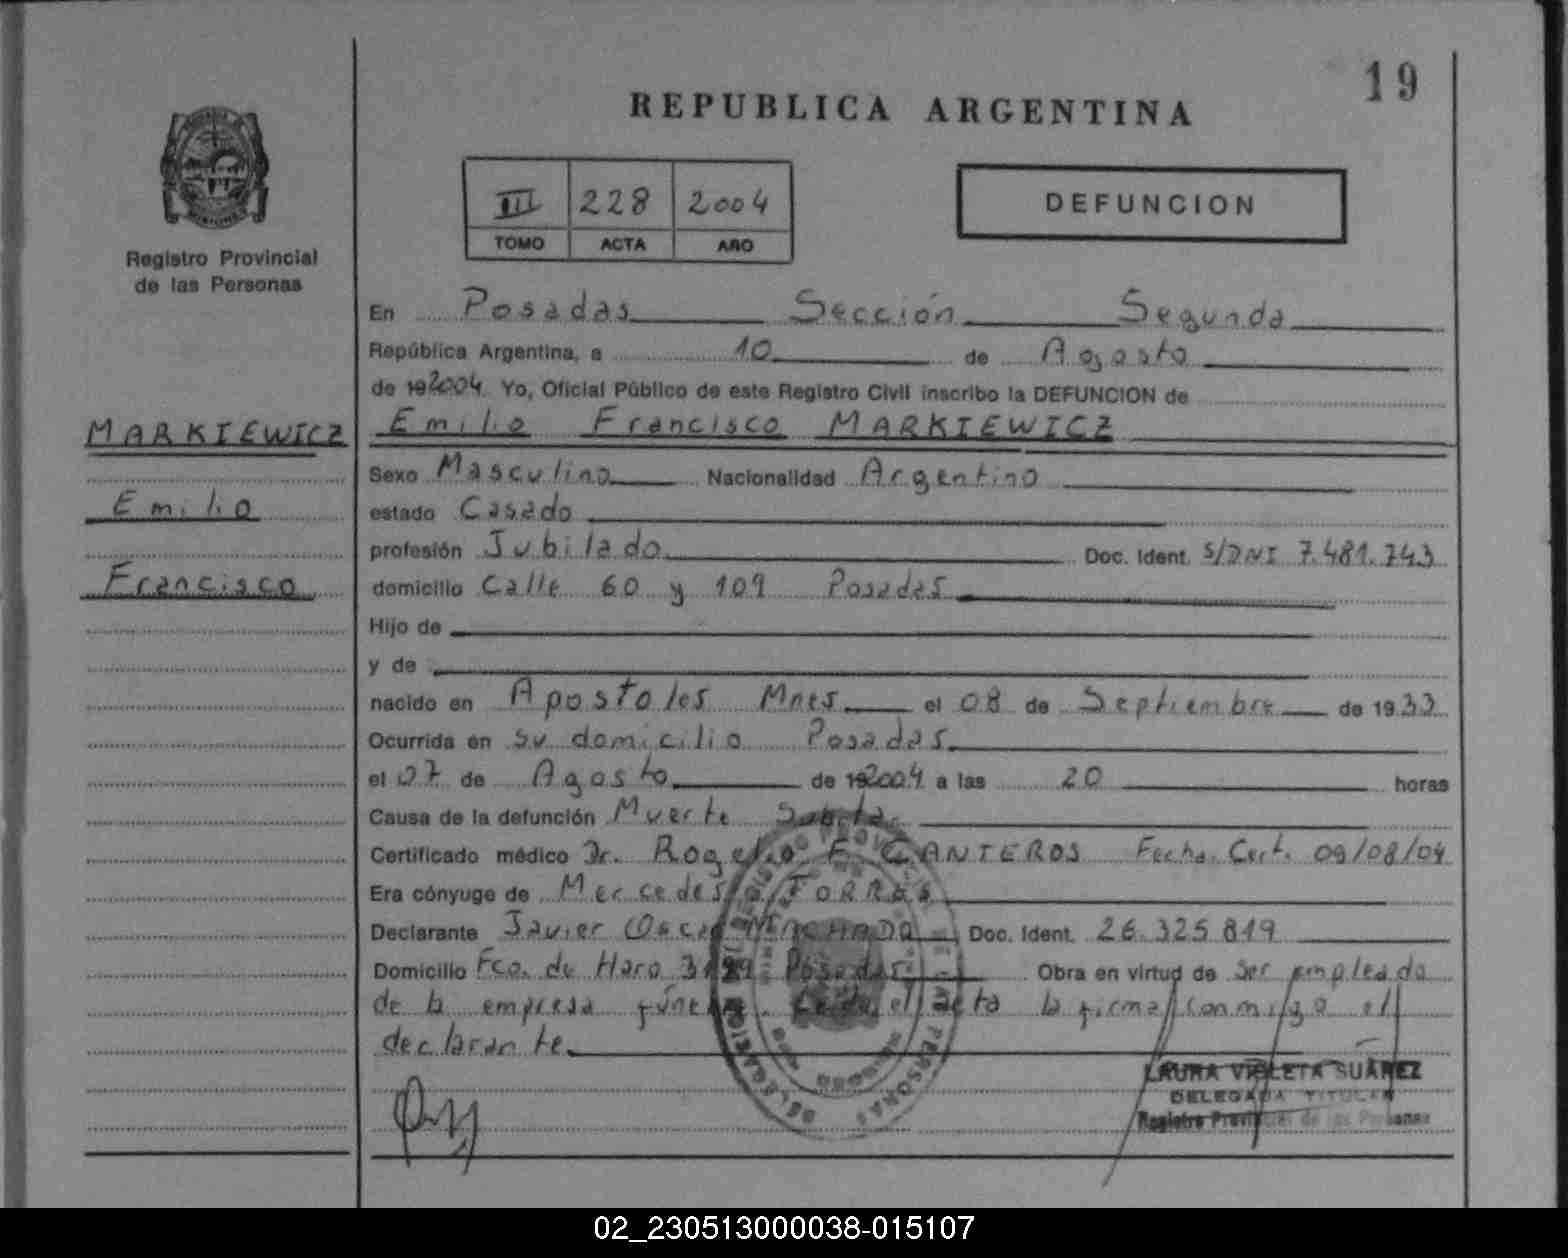 19
REPUBLICA ARGENTINA
III 228 2004
TOMO ACTA AÑO
DEFUNCION
Registro Provincial
de las Personas
MARKIEWICZ
Emilio
Francisco
En Posadas Sección Segunda
República Argentina, a 10 de Agosto
de 192004 Yo, Oficial Público de este Registro Civil inscribo la DEFUNCION de
Emilio Francisco MARKIEWICZ
Sexo Masculino Nacionalidad Argentino
estado Casado
profesión Jubilado Doc. Ident. S/DNI 7.481.743
domicilio Calle 60 y 109 Posadas
Hijo de
y de
nacido en Apostoles Mnes el 08 de Septiembre de 1933
Ocurrida en su domicilio Posadas
el 07 de Agosto de 192004 a las 20 horas
Causa de la defunción Muerte Subita
Certificado médico Dr. Rogelio F. CANTEROS Fecha Cert. 09/08/04
Era cónyuge de Mercedes
Declarante Javier Oscar Doc. Ident. 26.325.819
Domicilio Fco. de Haro Posadas Obra en virtud de ser empleado
de la empresa el acta la firma conmigo el
declarante
LAURA VIOLETA SUÁREZ
DELEGADA TITULAR
Registro Provincial de las Personas
02_230513000038-015107